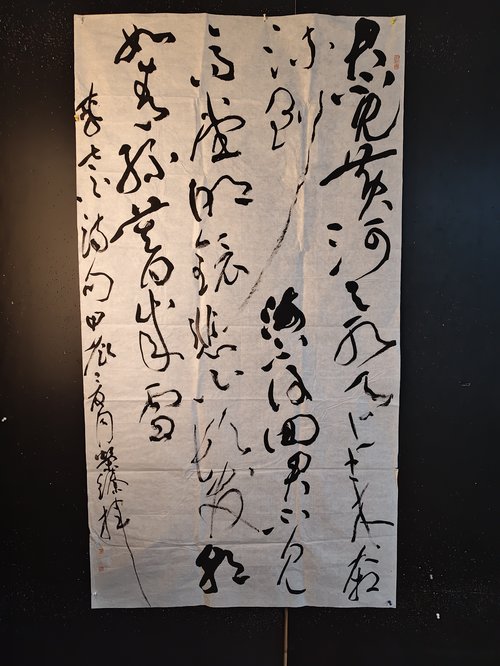 君不見黃河之水天上来奔
流到海不復回君不見
高堂明鏡悲白髮朝
如青絲暮成雪
李太白詩句甲辰夏月